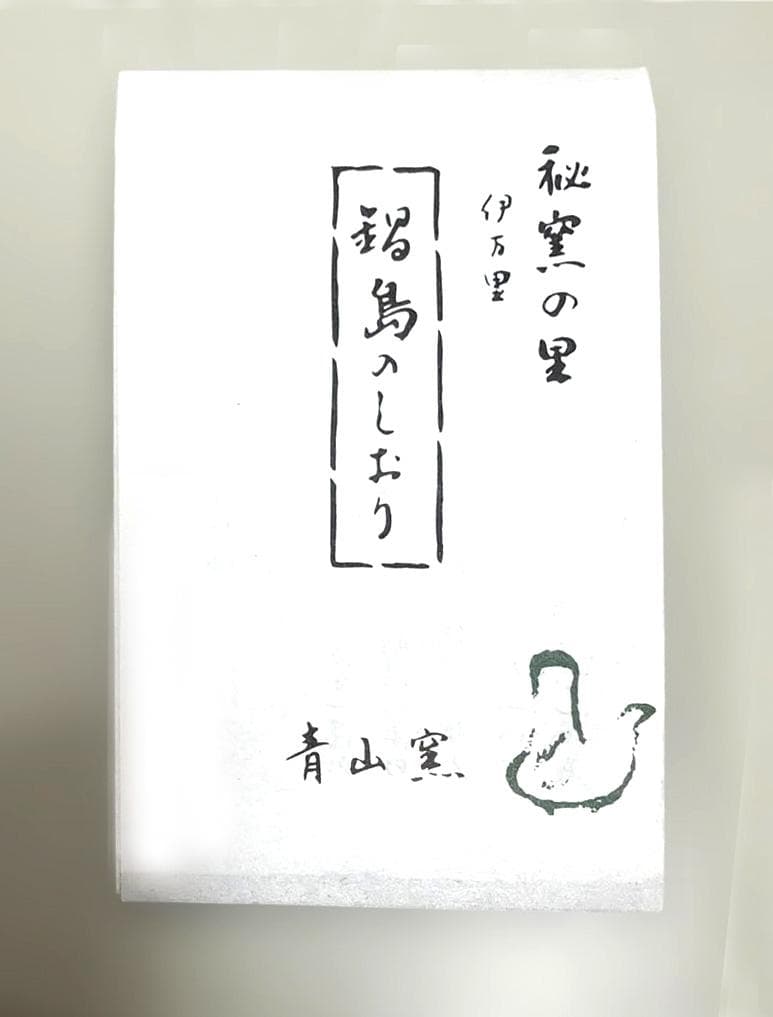 秘窯の里
伊万里
鍋島のしおり
青山窯